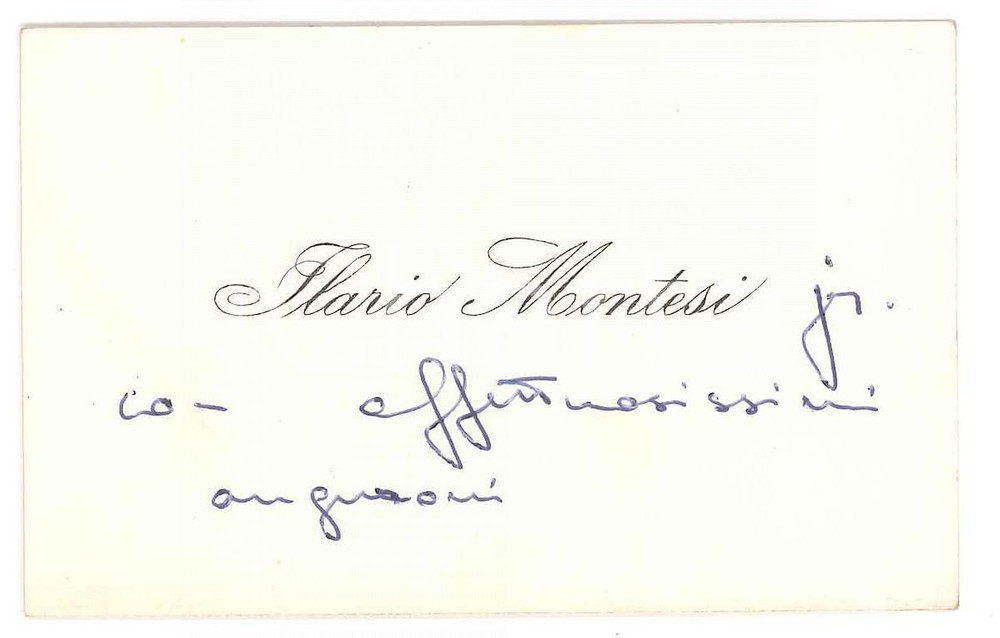 Ilario Montesi jr.
con affettuosissimi
auguroni